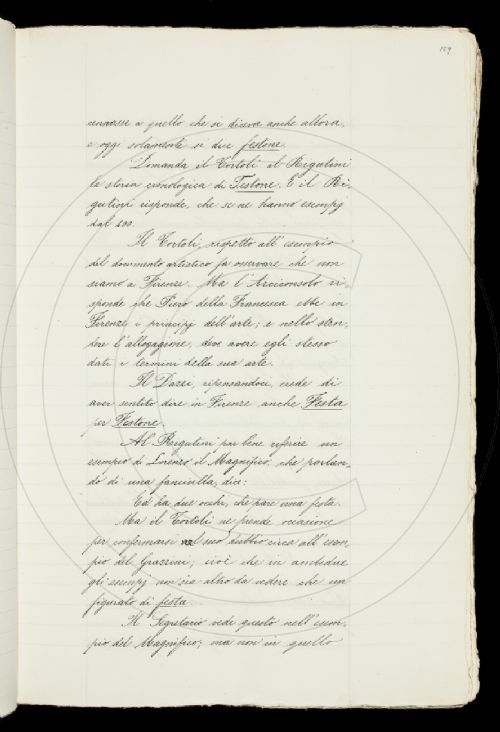 159
cennasse a quello che si diceva anche allora,
e oggi solamente si dice festone.
Domanda il Tortoli al Rigutini
la storia cronologica di Testone. E il Ri-
gutini risponde, che se ne hanno esempj
dal 300.
Il Tortoli, rispetto all'esempio
del documento artistico fa osservare che non
siamo a Firenze. Ma l'Arciconsolo ri-
sponde che Piero della Francesca ebbe in
Firenze i principj dell'arte; e nello sten-
dere l'allogagione, deve avere egli stesso
dati i termini della sua arte.
Il Dazzi, ripensandoci, crede di
aver sentito dire in Firenze anche Festa
per Festone.
Al Rigutini par bene riferire un
esempio di Lorenzo il Magnifico, che parlan-
do di una fanciulla, dice:
Ed ha due occhi, che pare una festa.
Ma il Tortoli ne prende occasione
per confermarsi nel suo dubbio circa all'esem-
pio del Grazzini; cioè che in ambedue
gli esempj non sia altro da vedere che un
figurato di festa.
Il Segretario vede questo nell'esem-
pio del Magnifico; ma non in quello